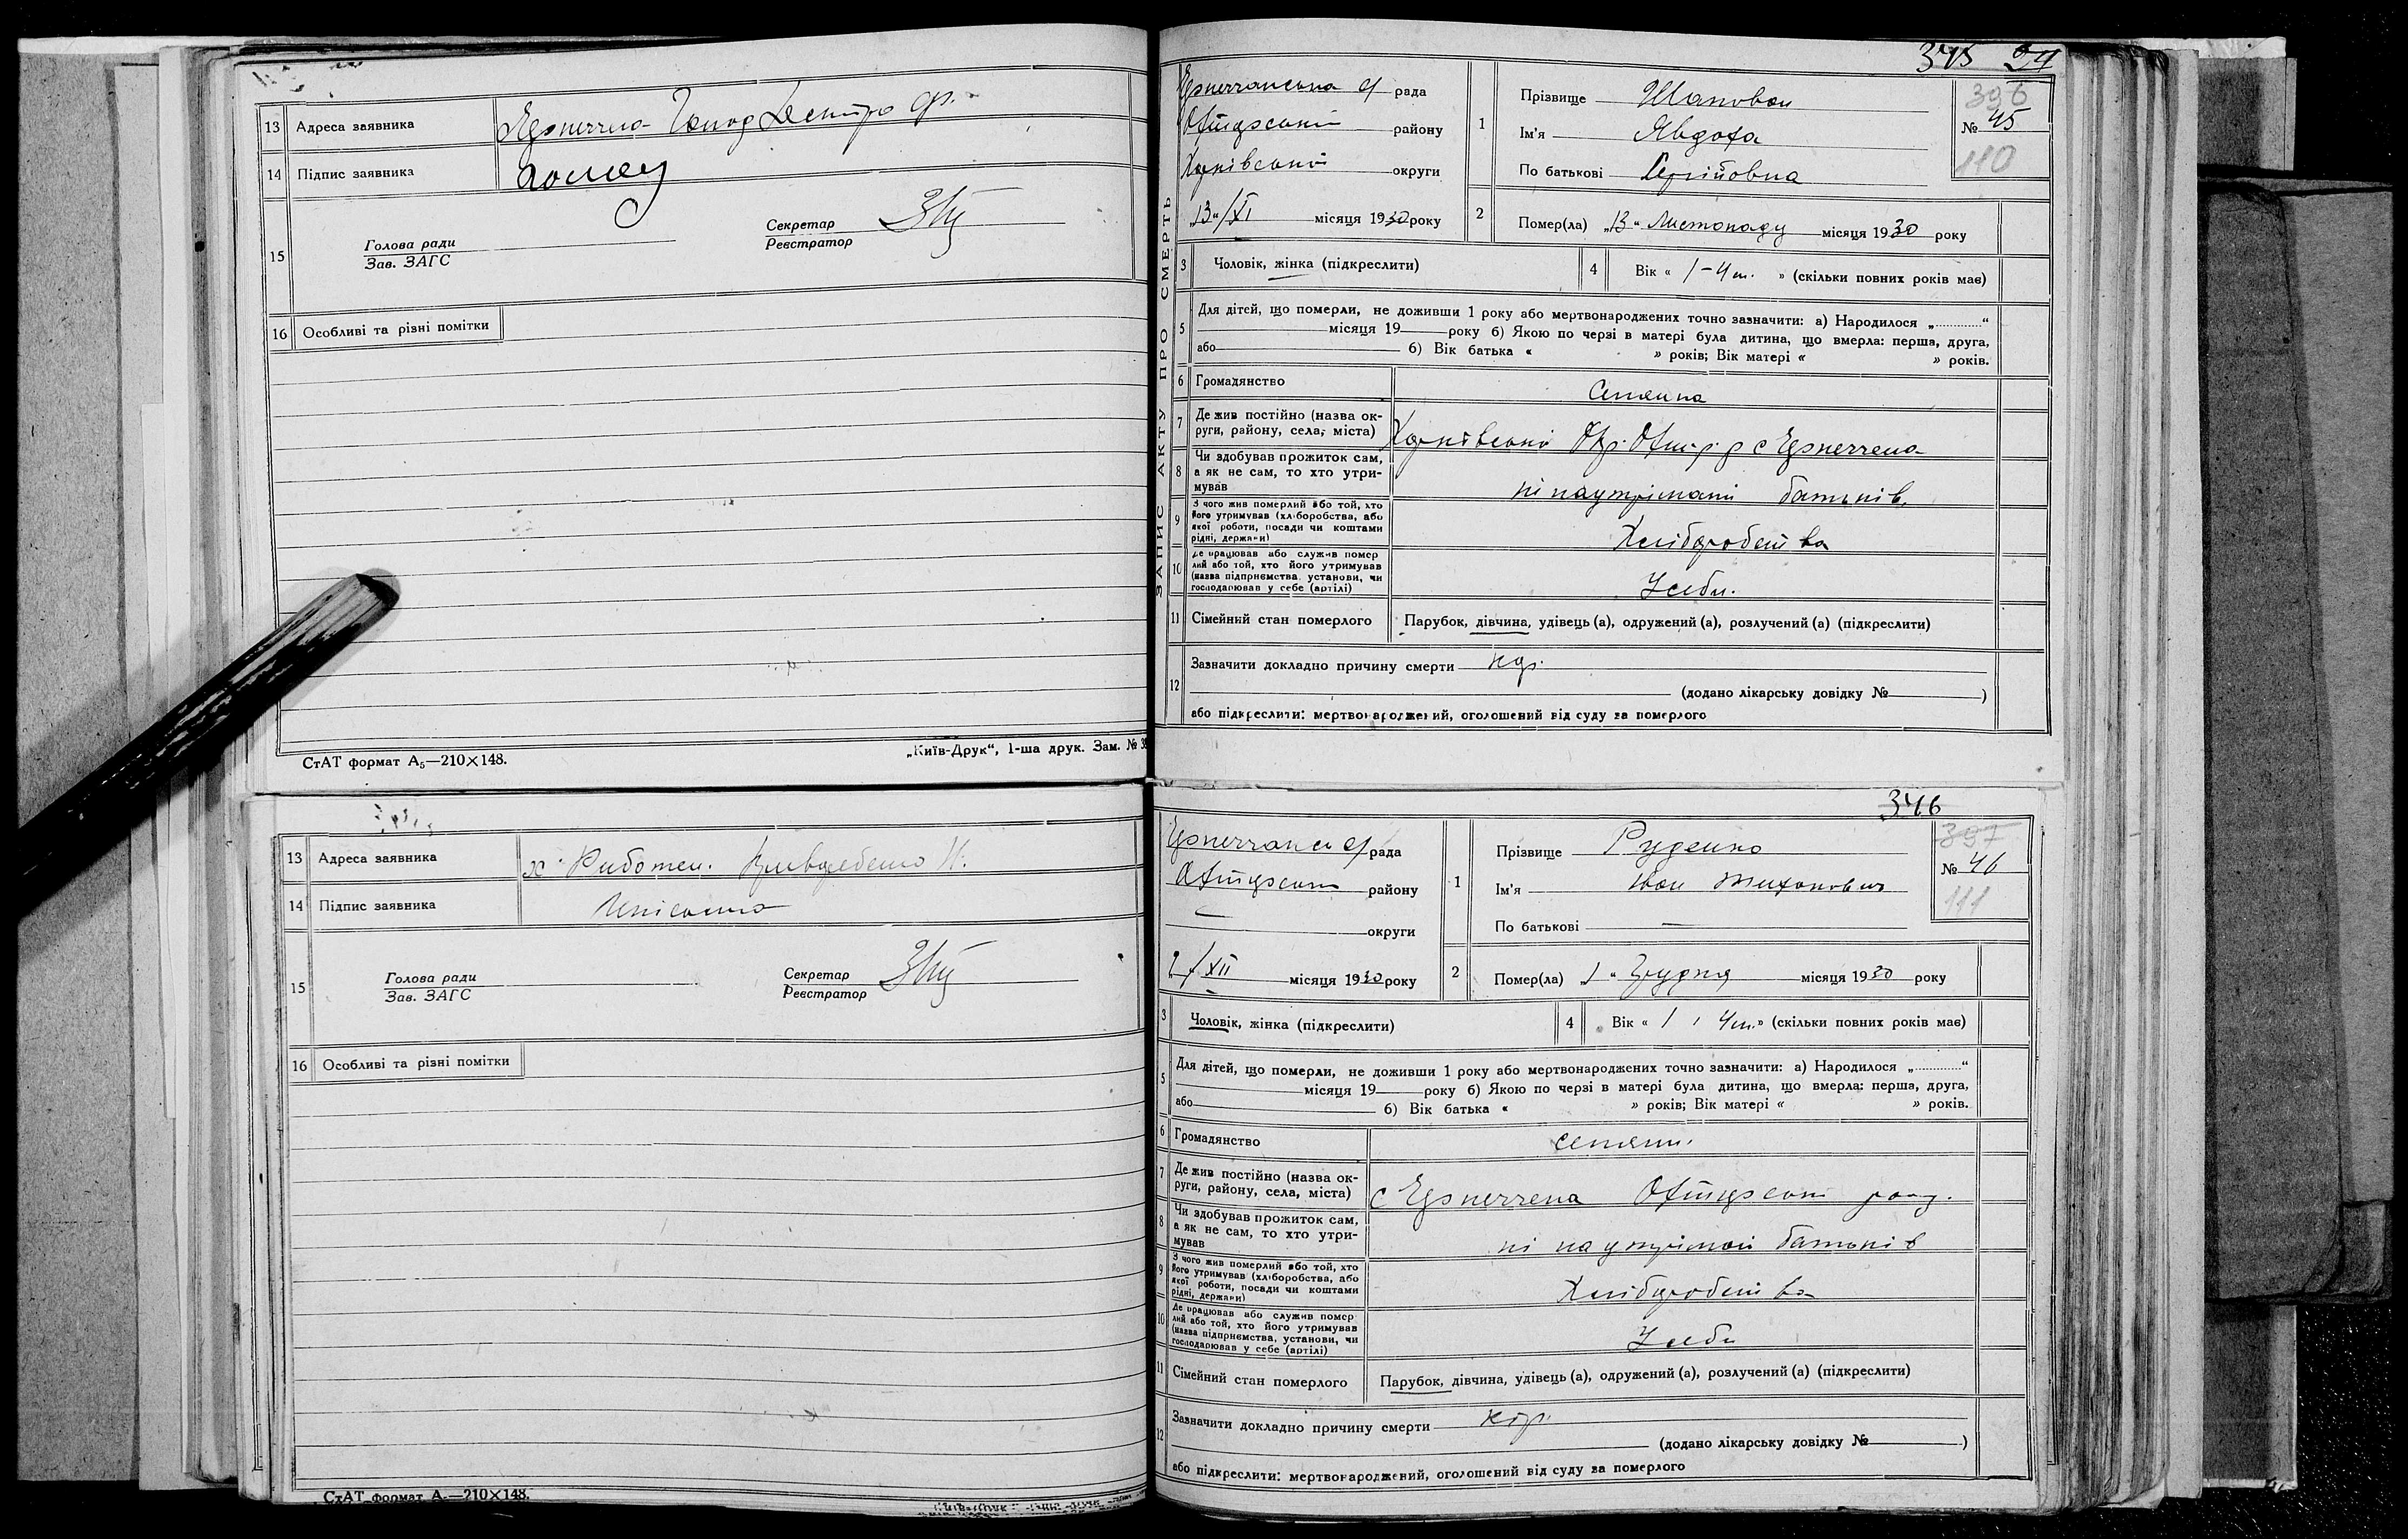 13 Адреса заявника
14 Підпис заявника
15 Голова ради
Зав. ЗАГС
Секретар
Реєстратор
16 Особливі та різні помітки
СтАТ формат А₅—210×148.
„Київ-Друк“, 1-ша друк. Зам. №
345 24
ЗАПИС АКТУ ПРО СМЕРТЬ
рада
району
Харківської округи
„13“/XI місяця 1930 року
1 Прізвище Шаповал
Ім'я Явдоха
По батькові Сергіївна
396
№ 45
110
2 Помер(ла) „13“ Листопаду місяця 1930 року
3 Чоловік, жінка (підкреслити)
4 Вік « 1-4м. » (скільки повних років має)
5 Для дітей, що померли, не доживши 1 року або мертвонароджених точно зазначити: а) Народилося „............“
місяця 19 року б) Якою по черзі в матері була дитина, що вмерла: перша, друга,
або б) Вік батька « » років; Вік матері « » років.
6 Громадянство Селянка
7 Де жив постійно (назва ок-
руги, району, села, міста)
8 Чи здобував прожиток сам,
а як не сам, то хто утри-
мував ні на утріманні батьків
9 З чого жив померлий або той, хто
його утримував (хліборобства, або
якої роботи, посади чи коштами
рідні, держави) Хліборобства
10 Де працював або служив помер
лий або той, хто його утримував
(назва підприємства, установи, чи
господарював у себе (артілі) У себи.
11 Сімейний стан померлого Парубок, дівчина, удівець (а), одружений (а), розлучений (а) (підкреслити)
12 Зазначити докладно причину смерти
(додано лікарську довідку № )
або підкреслити: мертвонароджений, оголошений від суду за померлого
13 Адреса заявника
14 Підпис заявника
15 Голова ради
Зав. ЗАГС
Секретар
Реєстратор
16 Особливі та різні помітки
СтАТ формат А₅—210×148.
346
рада
району
округи
2/XII місяця 1930 року
1 Прізвище Руденко
Ім'я Іван Тихонович
По батькові —
397
№ 46
111
2 Помер(ла) „1“ Грудня місяця 1930 року
3 Чоловік, жінка (підкреслити)
4 Вік « 1 і 4м.» (скільки повних років має)
5 Для дітей, що померли, не доживши 1 року або мертвонароджених точно зазначити: а) Народилося „............“
місяця 19 року б) Якою по черзі в матері була дитина, що вмерла: перша, друга,
або б) Вік батька « » років; Вік матері « » років.
6 Громадянство селянин.
7 Де жив постійно (назва ок-
руги, району, села, міста)
8 Чи здобував прожиток сам,
а як не сам, то хто утри-
мував ні на утріманні батьків
9 З чого жив померлий або той, хто
його утримував (хліборобства, або
якої роботи, посади чи коштами
рідні, держави) Хліборобства
10 Де працював або служив помер
лий або той, хто його утримував
(назва підприємства, установи, чи
господарював у себе (артілі) У себи
11 Сімейний стан померлого Парубок, дівчина, удівець (а), одружений (а), розлучений (а) (підкреслити)
12 Зазначити докладно причину смерти
(додано лікарську довідку № )
або підкреслити: мертвонароджений, оголошений від суду за померлого